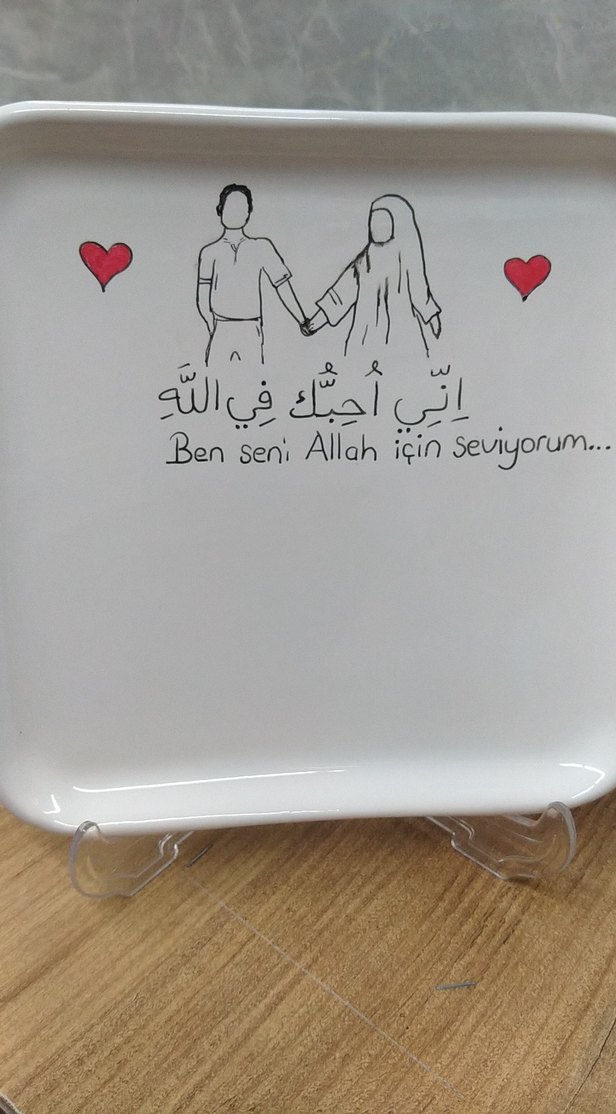 اِنِّي اُحِبُّكَ فِي اللَّهِ
Ben seni Allah için seviyorum...